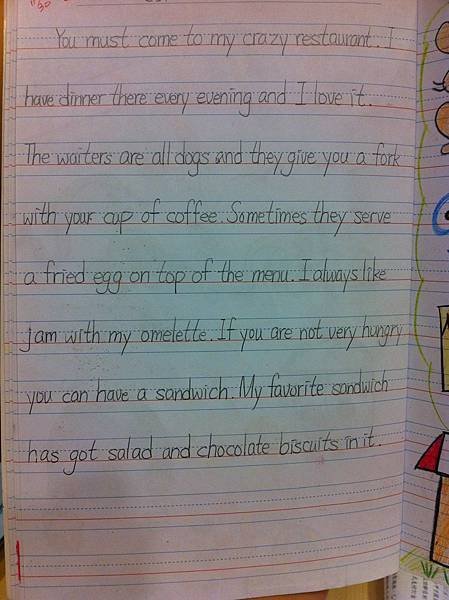 You must come to my crazy restaurant. I
have dinner there every evening and I love it.
The waiters are all dogs and they give you a fork
with your cup of coffee. Sometimes they serve
a fried egg on top of the menu. I always like
jam with my omelette. If you are not very hungry
you can have a sandwich. My favorite sandwich
has got salad and chocolate biscuits in it.